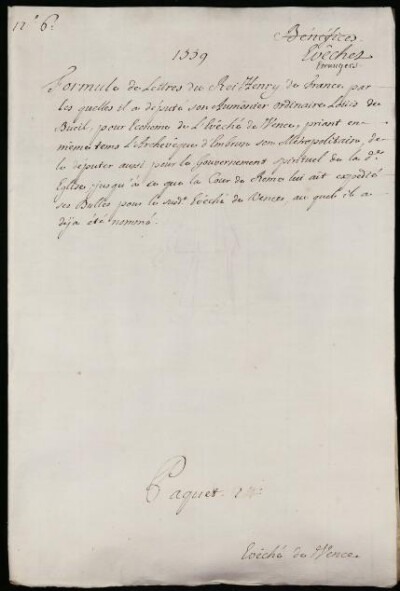 n° 6.
Bénéfices
Evêchés
Etrangers
1559
Formule de Lettres du Roi Henry de France par
les quelles il a député son Aumônier ordinaire Louis de
Bueil, pour l'econome de L'Evêché de Vence, priant en
même tems L'Archevêque d'Embrun son Métropolitain, de
le députer aussi pour le Gouvernement spirituel de la de.
Eglise jusqu'à ce que la Cour de Rome lui ait expedié
ses Bulles pour le sudt. Evêché de Vence, au quel il a
déja été nommé.
Paquet
Evêché de Vence